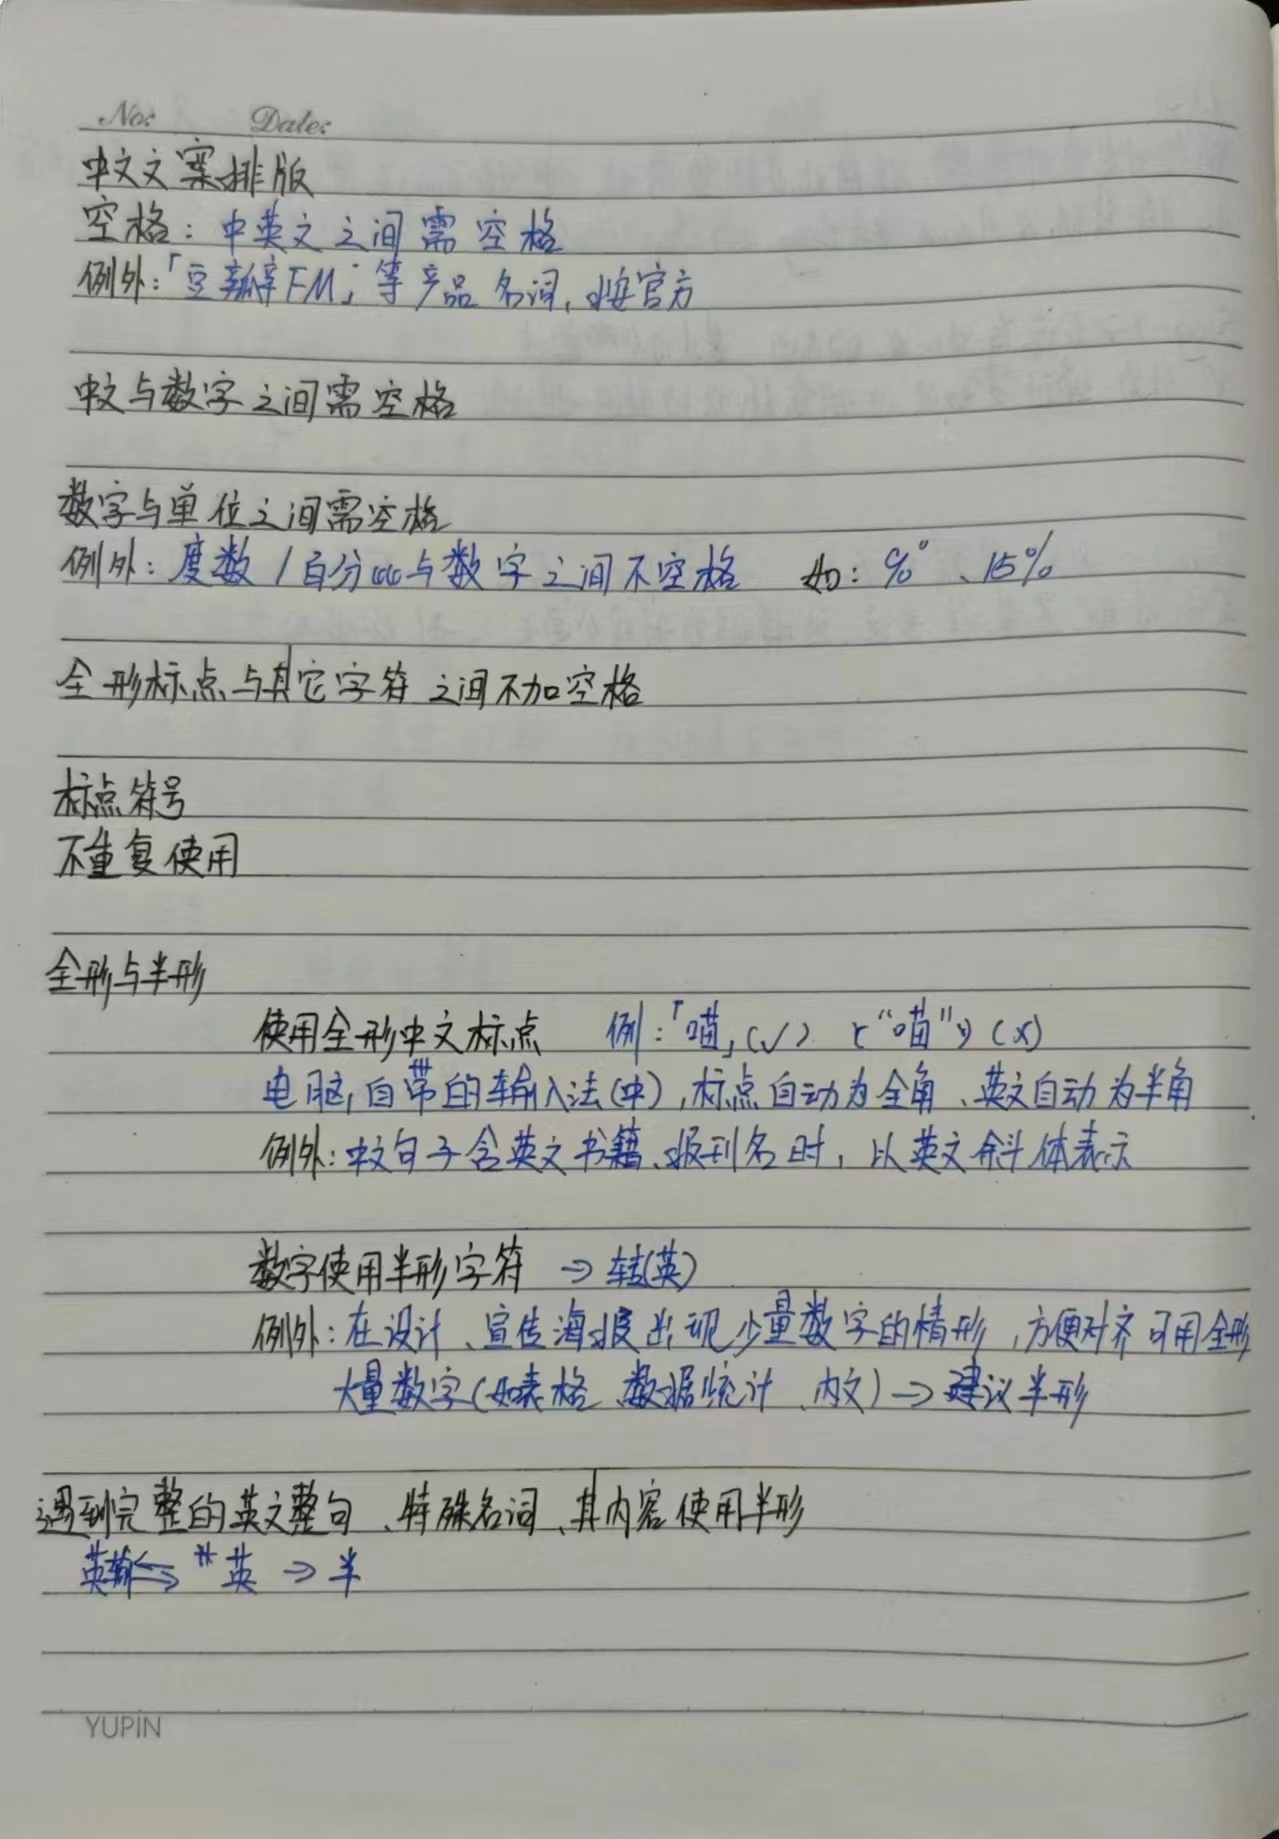 No: Date:
中文文案排版
空格：中英文之间需空格
例外：「豆瓣FM」等产品名词，按官方
中文与数字之间需空格
数字与单位之间需空格
例外：度数/百分比与数字之间不空格 如：90°、15%
全形标点与其它字符之间不加空格
标点符号
不重复使用
全形与半形
使用全形中文标点 例：「喵」(√) ("喵") (×)
电脑自带的输入法(中)，标点自动为全角、英文自动为半角
例外：中文句子含英文书籍、报刊名时，以英文斜体表示
数字使用半形字符 → 转(英)
例外：在设计、宣传海报出现少量数字的情形，方便对齐可用全形
大量数字(如表格、数据统计、内文)→建议半形
遇到完整的英文整句、特殊名词、其内容使用半形
英 → 半
YUPIN